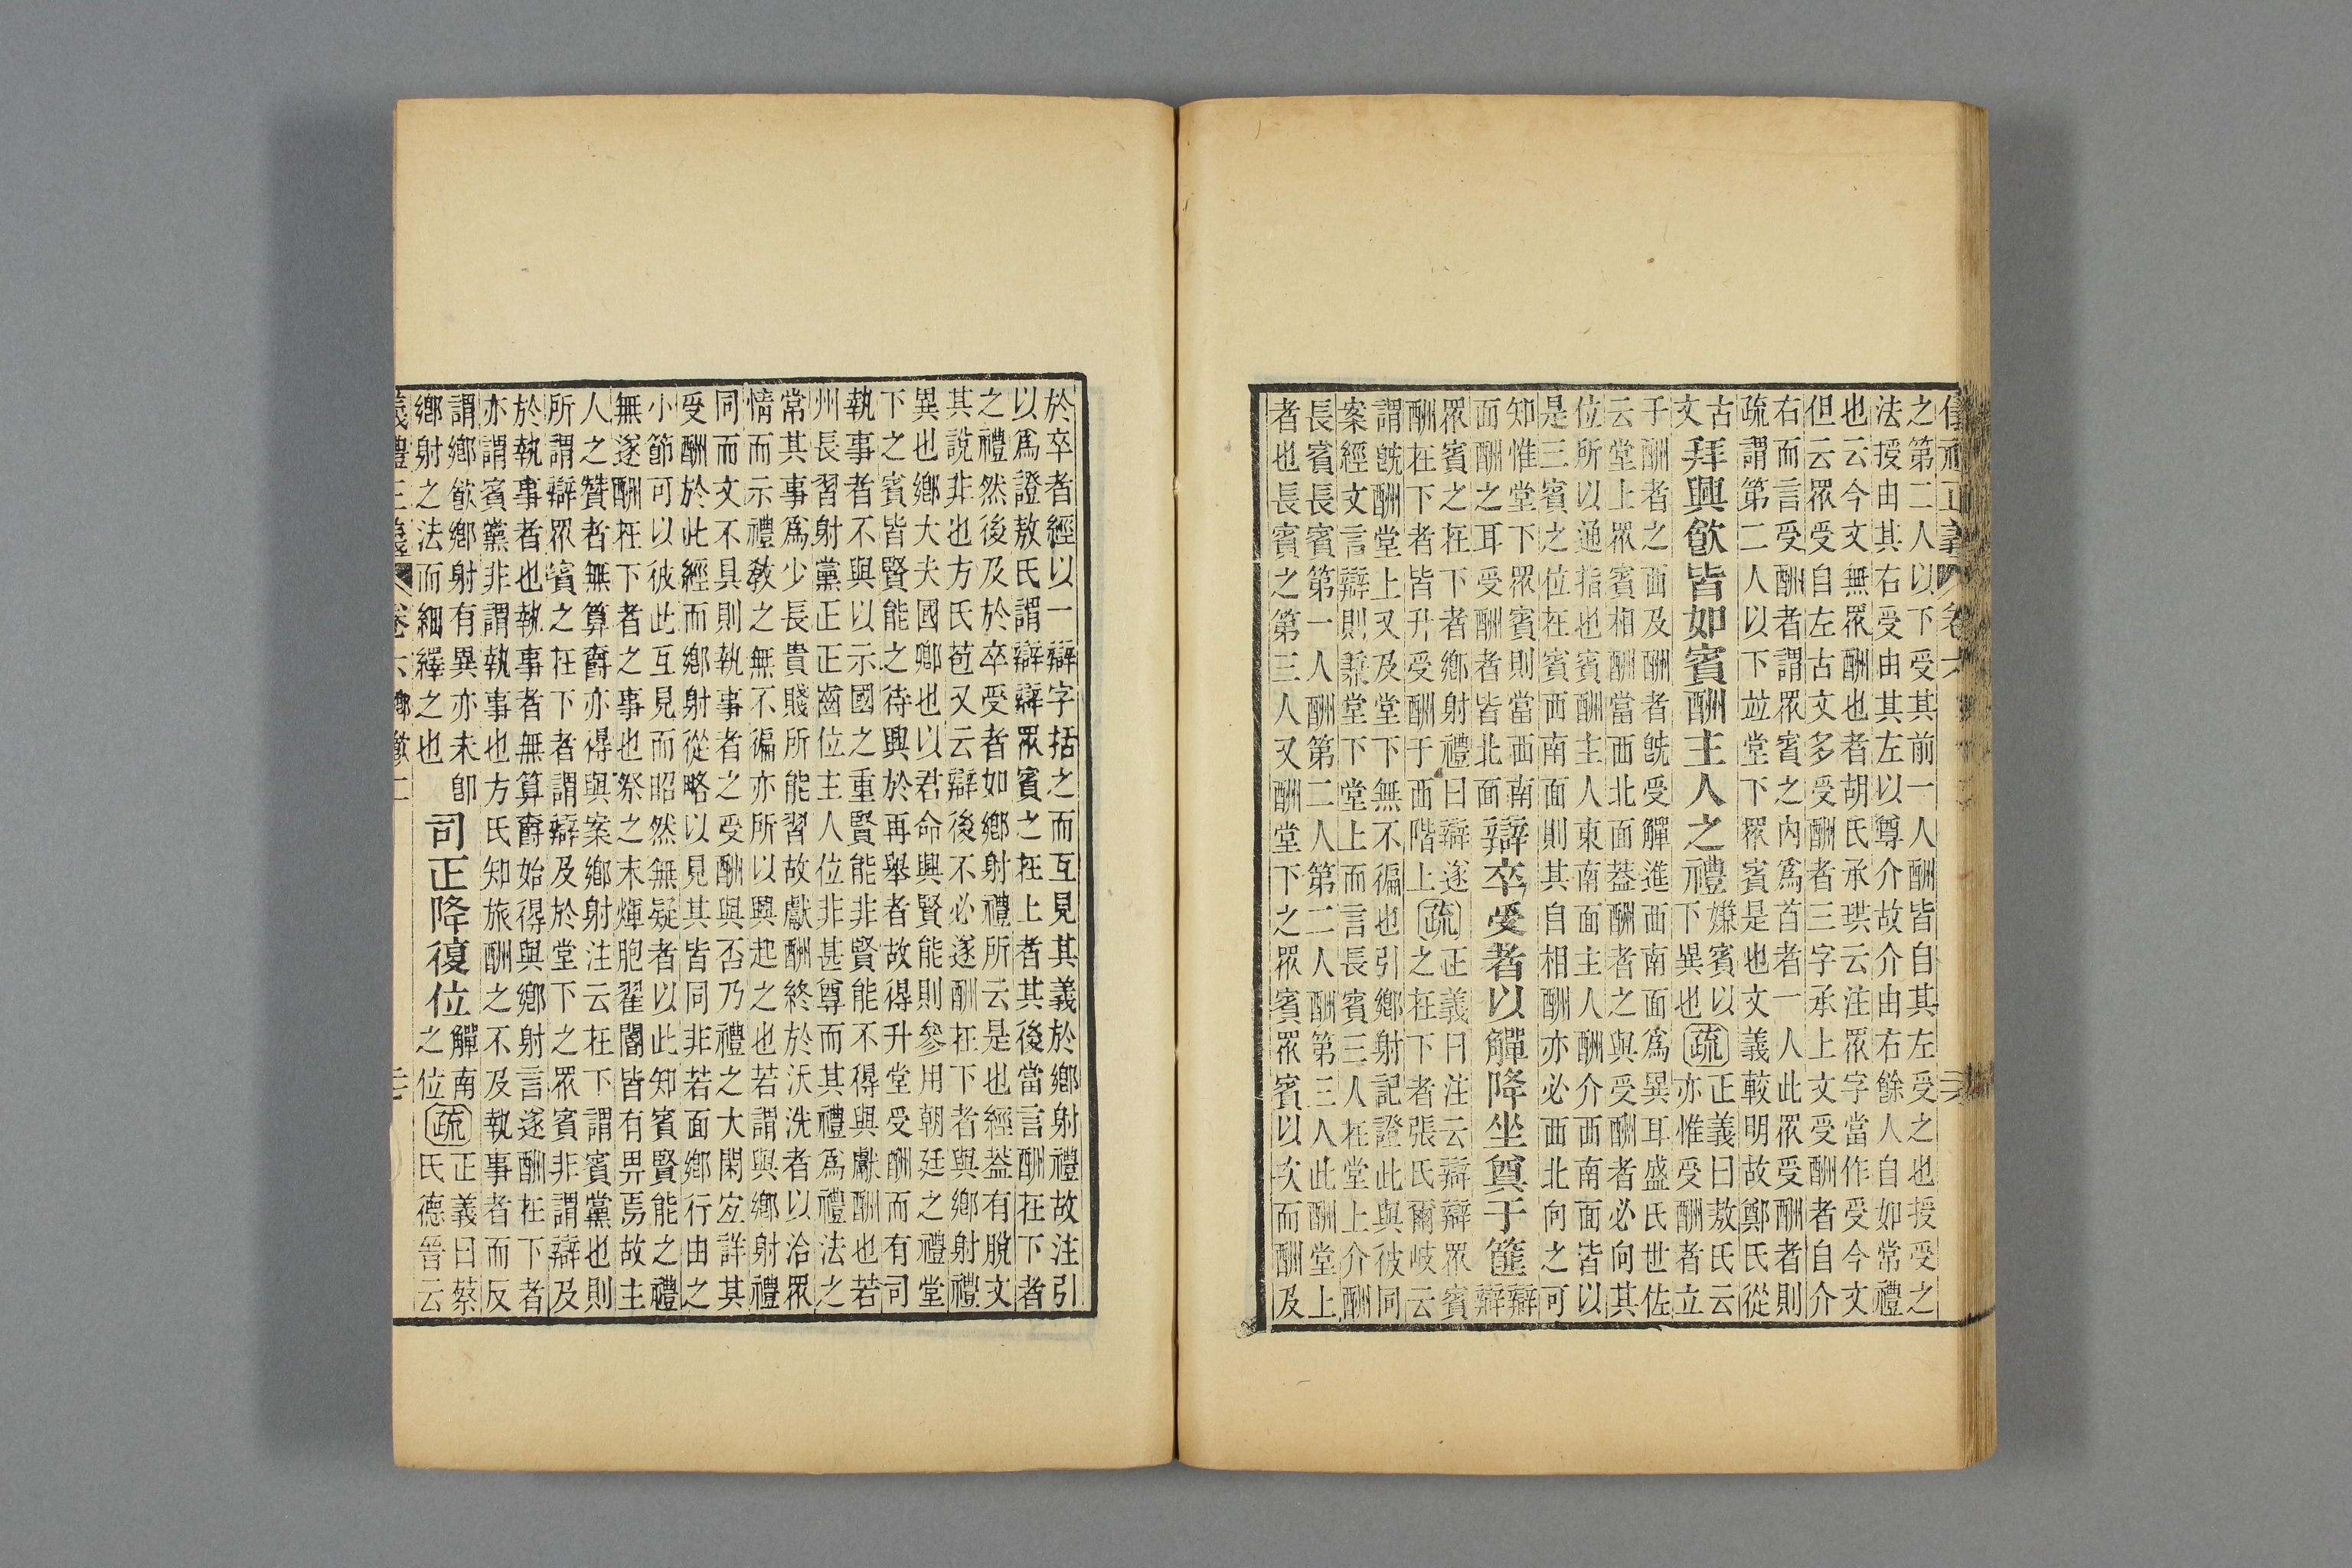 之第二人以下受其前一人酬皆自其左受之也授受之
法授由其右受由其左以尊介故介由右餘人自如常禮
也云今文無眾酬也者胡氏承珙云注眾字當作受今文
但云眾受自左古文多受酬者三字承上文受酬者自介
右而言受酬者謂眾賓之內為首者一人此眾受酬者則
疏謂第二人以下並堂下眾賓是也文義較明故鄭氏從
古文拜興飲皆如賓酬主人之禮嫌賓以下異也疏正義曰敖氏云亦惟受酬者立
于酬者之西及酬者既受觶進西南面為異耳盛氏世佐
云堂上眾賓相酬當西北面蓋酬者之與受酬者必向其
位所以通指也賓酬主人東南面主人酬介西南面皆以
是三賓之位在賓西南面則其自相酬亦必西北向之可
知惟堂下眾賓則當西南面酬之耳受酬者皆北面辯卒受者以觶降坐奠于篚辯辯
眾賓之在下者鄉射禮曰辯遂酬在下者皆升受酬于西階上疏正義曰注云辯辯眾賓之在下者張氏爾岐云
謂既酬堂上又及堂下無不徧也引鄉射記證此與彼同
案經文言辯則兼堂下堂上而言長賓三人在堂上介酬
長賓長賓第一人酬第二人第二人酬第三人此酬堂上
者也長賓之第三人又酬堂下之眾賓眾賓以次而酬及
於卒者經以一辯字括之而互見其義於鄉射禮故注引
以為證敖氏謂辯辯眾賓之在上者其後當言酬在下者
之禮然後及於卒受者如鄉射禮所云是也經蓋有脫文
其說非也方氏苞又云辯後不必遂酬在下者與鄉射禮
異也鄉大夫國卿也以君命興賢能則參用朝廷之禮堂
下之賓皆賢能之待興於再舉者故得升堂受酬而有司
執事者不與以示國之重賢能非賢能不得與獻酬也若
州長習射黨正正齒位主人位非甚尊而其禮為禮法之
常其事為少長貴賤所能習故獻酬終於沃洗者以洽眾
情而示禮教之無不徧亦所以興起之也若謂與鄉射禮
同而文不具則執事者之受酬與否乃禮之大閑宜詳其
受酬於此經而鄉射從略以見其皆同非若面鄉行由之
小節可以彼此互見而昭然無疑者以此知賓賢能之禮
無遂酬在下者之事也祭之末煇胞翟閽皆有畀焉故主
人之贊者無算爵亦得與案鄉射注云在下謂賓黨也則
所謂辯眾賓之在下者謂辯及於堂下之眾賓非謂辯及
於執事者也執事者無算爵始得與鄉射言遂酬在下者
亦謂賓黨非謂執事也方氏知旅酬之不及執事者而反
謂鄉飲鄉射有異亦未即鄉射之法而細繹之也司正降復位觶南之位疏正義曰蔡氏德晉云